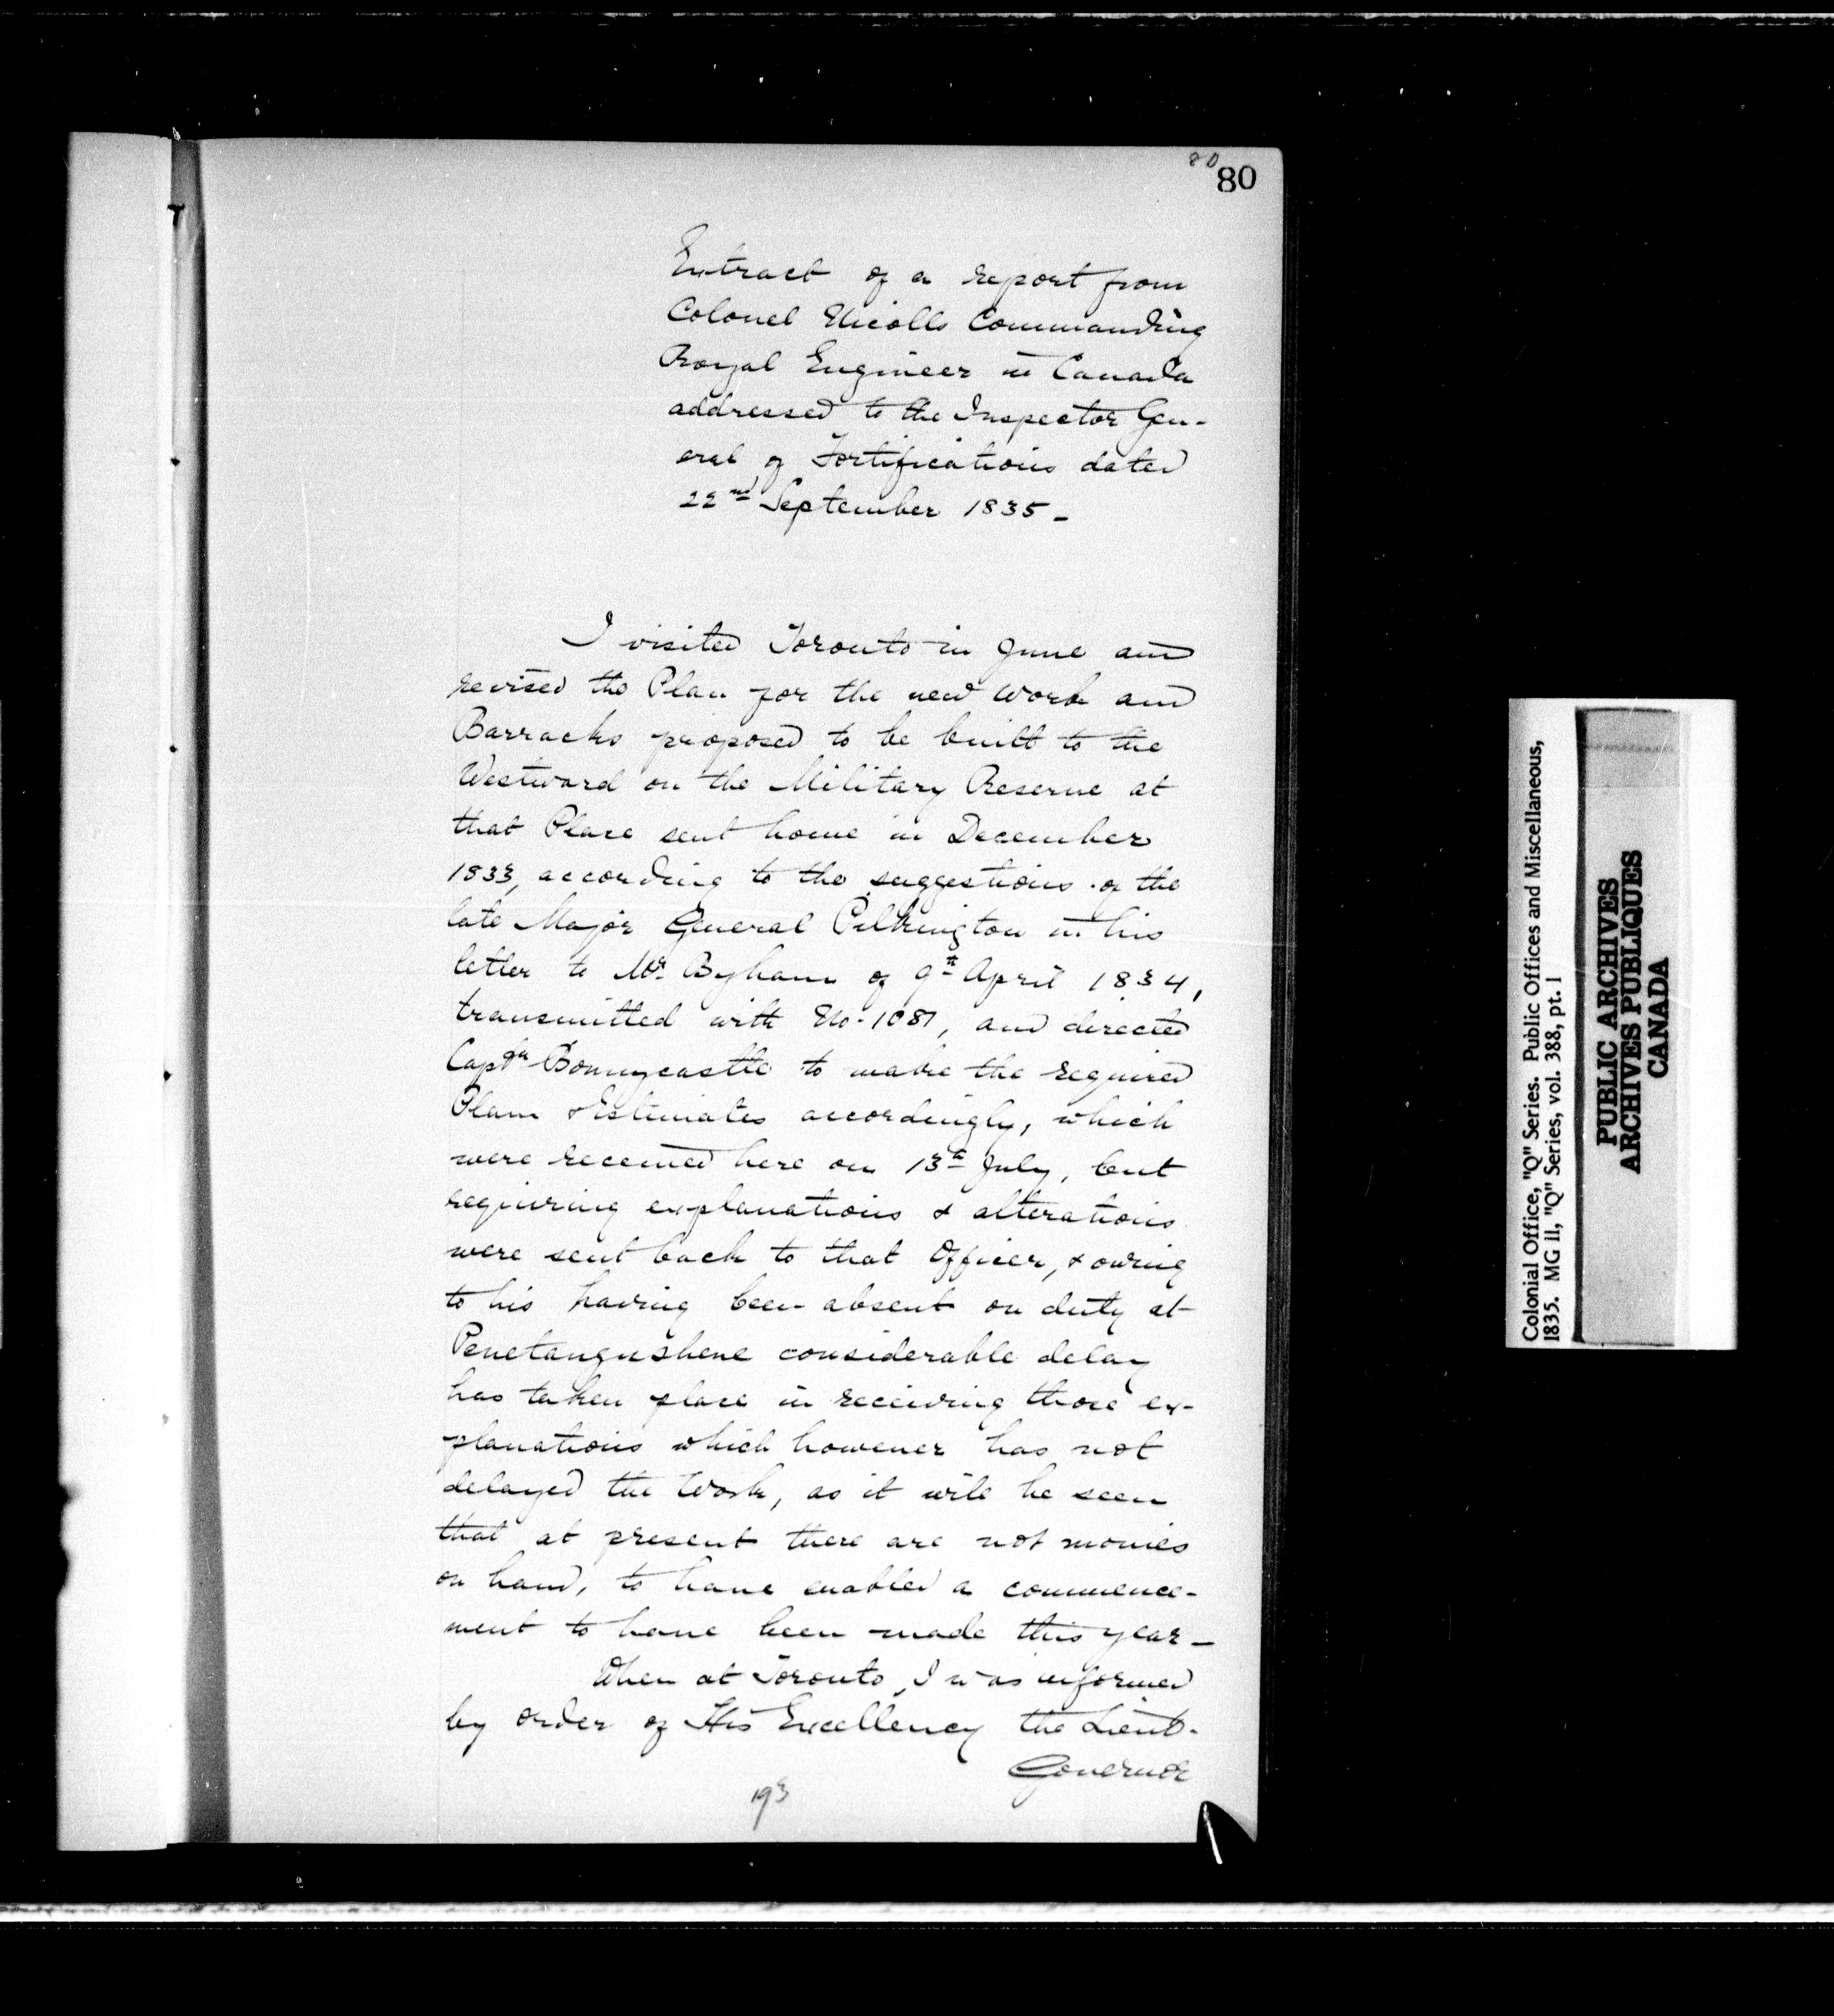 80
80
Extract of a report from
Colonel Nicolls Commanding
Royal Engineer in Canada
addressed to the Inspector Gen-
eral of Fortifications dated
22nd September 1835-
I visited Toronto in June and
revised the Plan for the new Work and
Barracks proposed to be built to the
Westward on the Military Reserve at
that Place sent home in December
1833, according to the suggestions of the
late Major General Pilkington in his
letter to Mr. Byham of 9th April 1834,
transmitted with No-1081, and directed
Captn Bonnycastle to make the required
Plan & Estimates accordingly, which
were received here on 13th July, but
requiring explanations & alterations
were sent back to that Officer, & owing
to his having been absent on duty at
Penetangushene considerable delay
has taken place in receiving those ex-
planations which however has not
delayed the Work, as it will be seen
that at present there are not monies
on hand, to have enabled a commence-
ment to have been made this year-
When at Toronto, I was informed
by order of His Excellency the Lieut-
Governor
193
Colonial Office, "Q" Series. Public Offices and Miscellaneous,
1835. MG 11, "Q" Series, vol. 388, pt. 1
PUBLIC ARCHIVES
ARCHIVES PUBLIQUES
CANADA